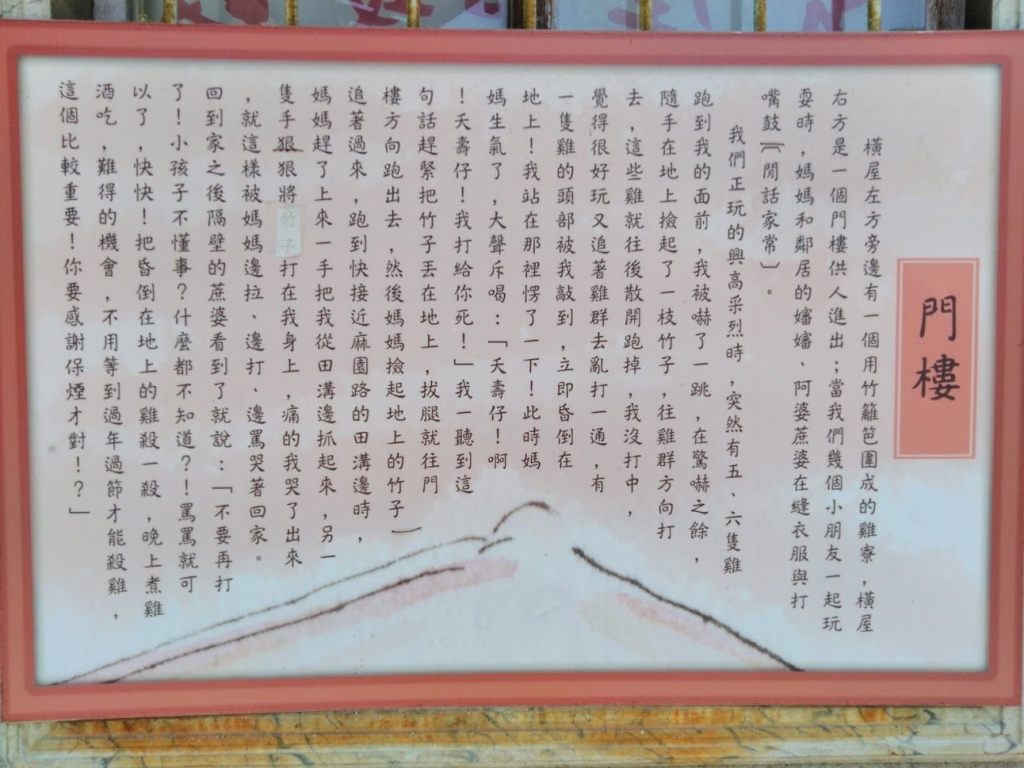 門樓
橫屋左方旁邊有一個用竹籬笆圍成的雞寮，橫屋
右方是一個門樓供人進出；當我們幾個小朋友一起玩
耍時，媽媽和鄰居的嬸嬸、阿婆蔗婆在縫衣服與打
嘴鼓〔閒話家常〕。
我們正玩的興高采烈時，突然有五、六隻雞
跑到我的面前，我被嚇了一跳，在驚嚇之餘，
隨手在地上撿起了一枝竹子，往雞群方向打
去，這些雞就往後散開跑掉，我沒打中，
覺得很好玩又追著雞群去亂打一通，有
一隻雞的頭部被我敲到，立即昏倒在
地上！我站在那裡愣了一下！此時媽
媽生氣了，大聲斥喝：「夭壽仔！啊
！夭壽仔！我打給你死！」我一聽到這
句話趕緊把竹子丟在地上，拔腿就往門
樓方向跑出去，然後媽媽撿起地上的竹子）
追著過來，跑到快接近麻園路的田溝邊時，
媽媽趕了上來一手把我從田溝邊抓起來，另一
隻手狠狠將竹子打在我身上，痛的我哭了出來
，就這樣被媽媽邊拉、邊打、邊罵哭著回家。
回到家之後隔壁的蔗婆看到了就說：「不要再打
了！小孩子不懂事？什麼都不知道？！罵罵就可
以了，快快！把昏倒在地上的雞殺一殺，晚上煮雞
酒吃，難得的機會，不用等到過年過節才能殺雞，
這個比較重要！你要感謝保煙才對！？」